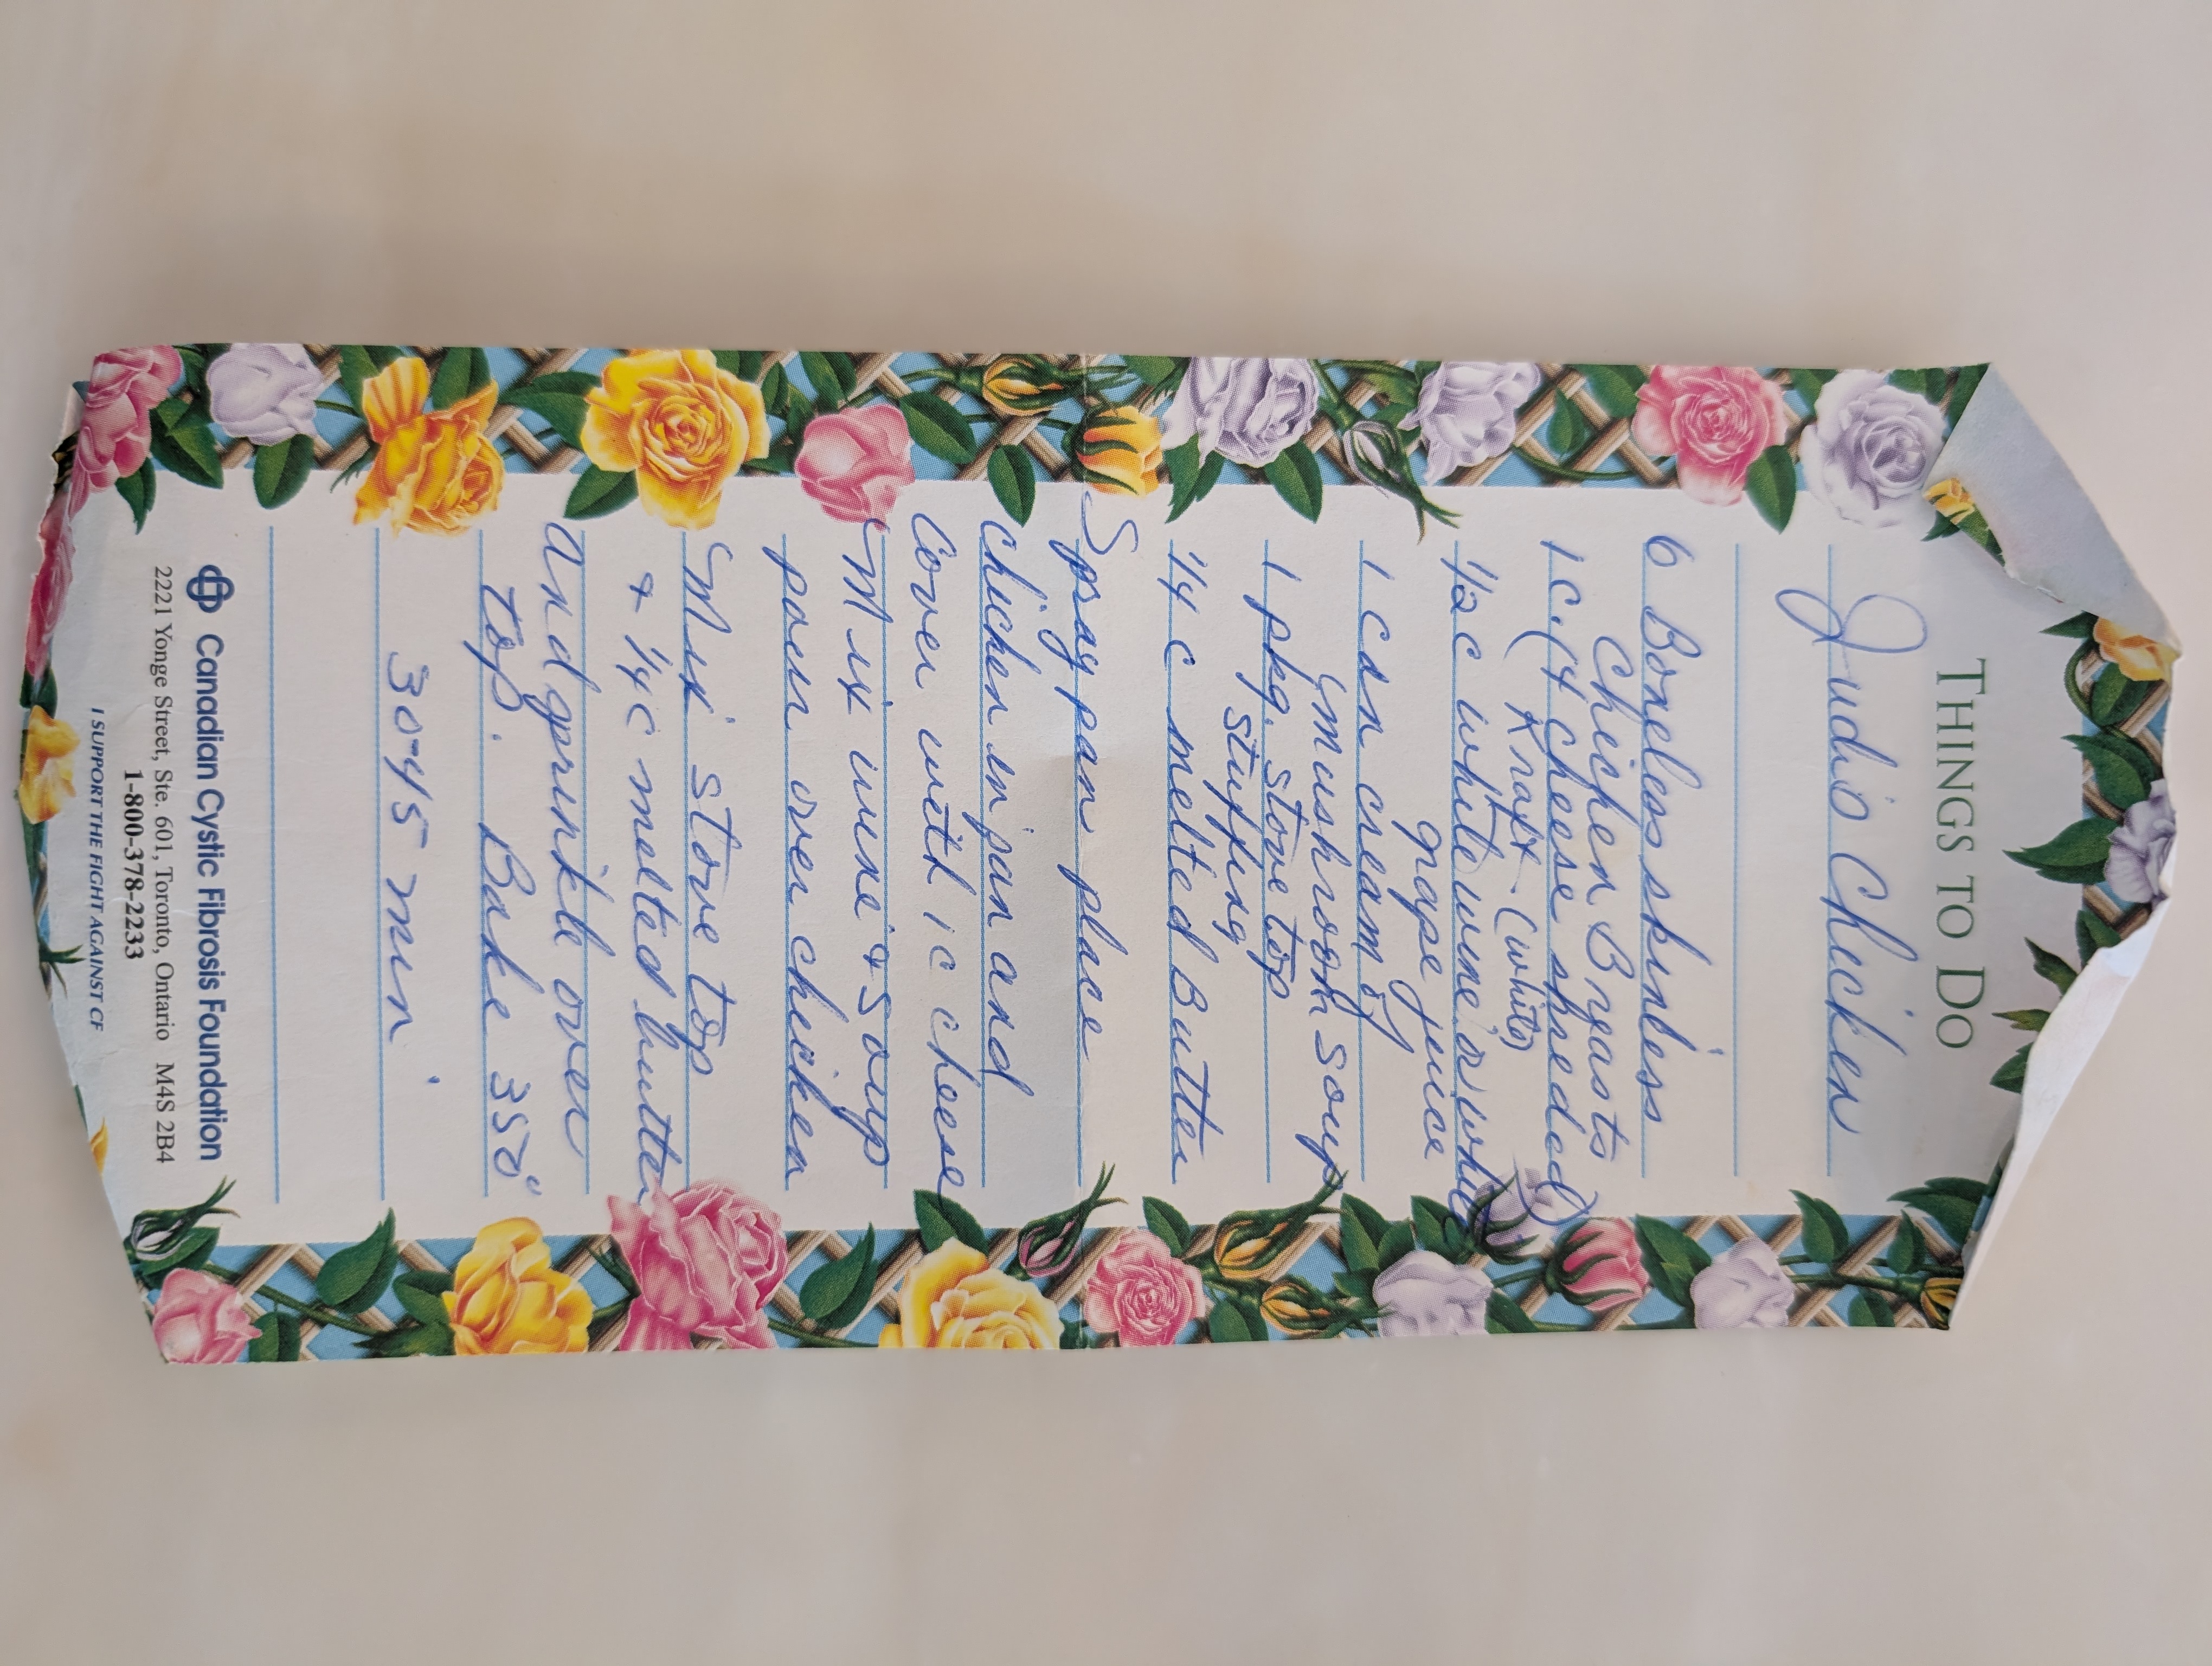 THINGS TO DO
Judi's Chicken
6 Boneless skinless
Chicken Breasts
1 C. (4 cheese shreded)
Kraft - (white)
1/2 C white wine or white
grape juice
1 can cream of
mushroom soup
1 pkg. stove top
stuffing
1/4 C melted Butter
Spray pan place
chicken in pan and
Cover with 1 C cheese
Mix wine & soup
pour over chicken
Mix stove top
& 1/4 C melted butter
and sprinkle over
top. Bake 350°
30-45 min.
Canadian Cystic Fibrosis Foundation
2221 Yonge Street, Ste. 601, Toronto, Ontario M4S 2B4
1-800-378-2233
I SUPPORT THE FIGHT AGAINST CF